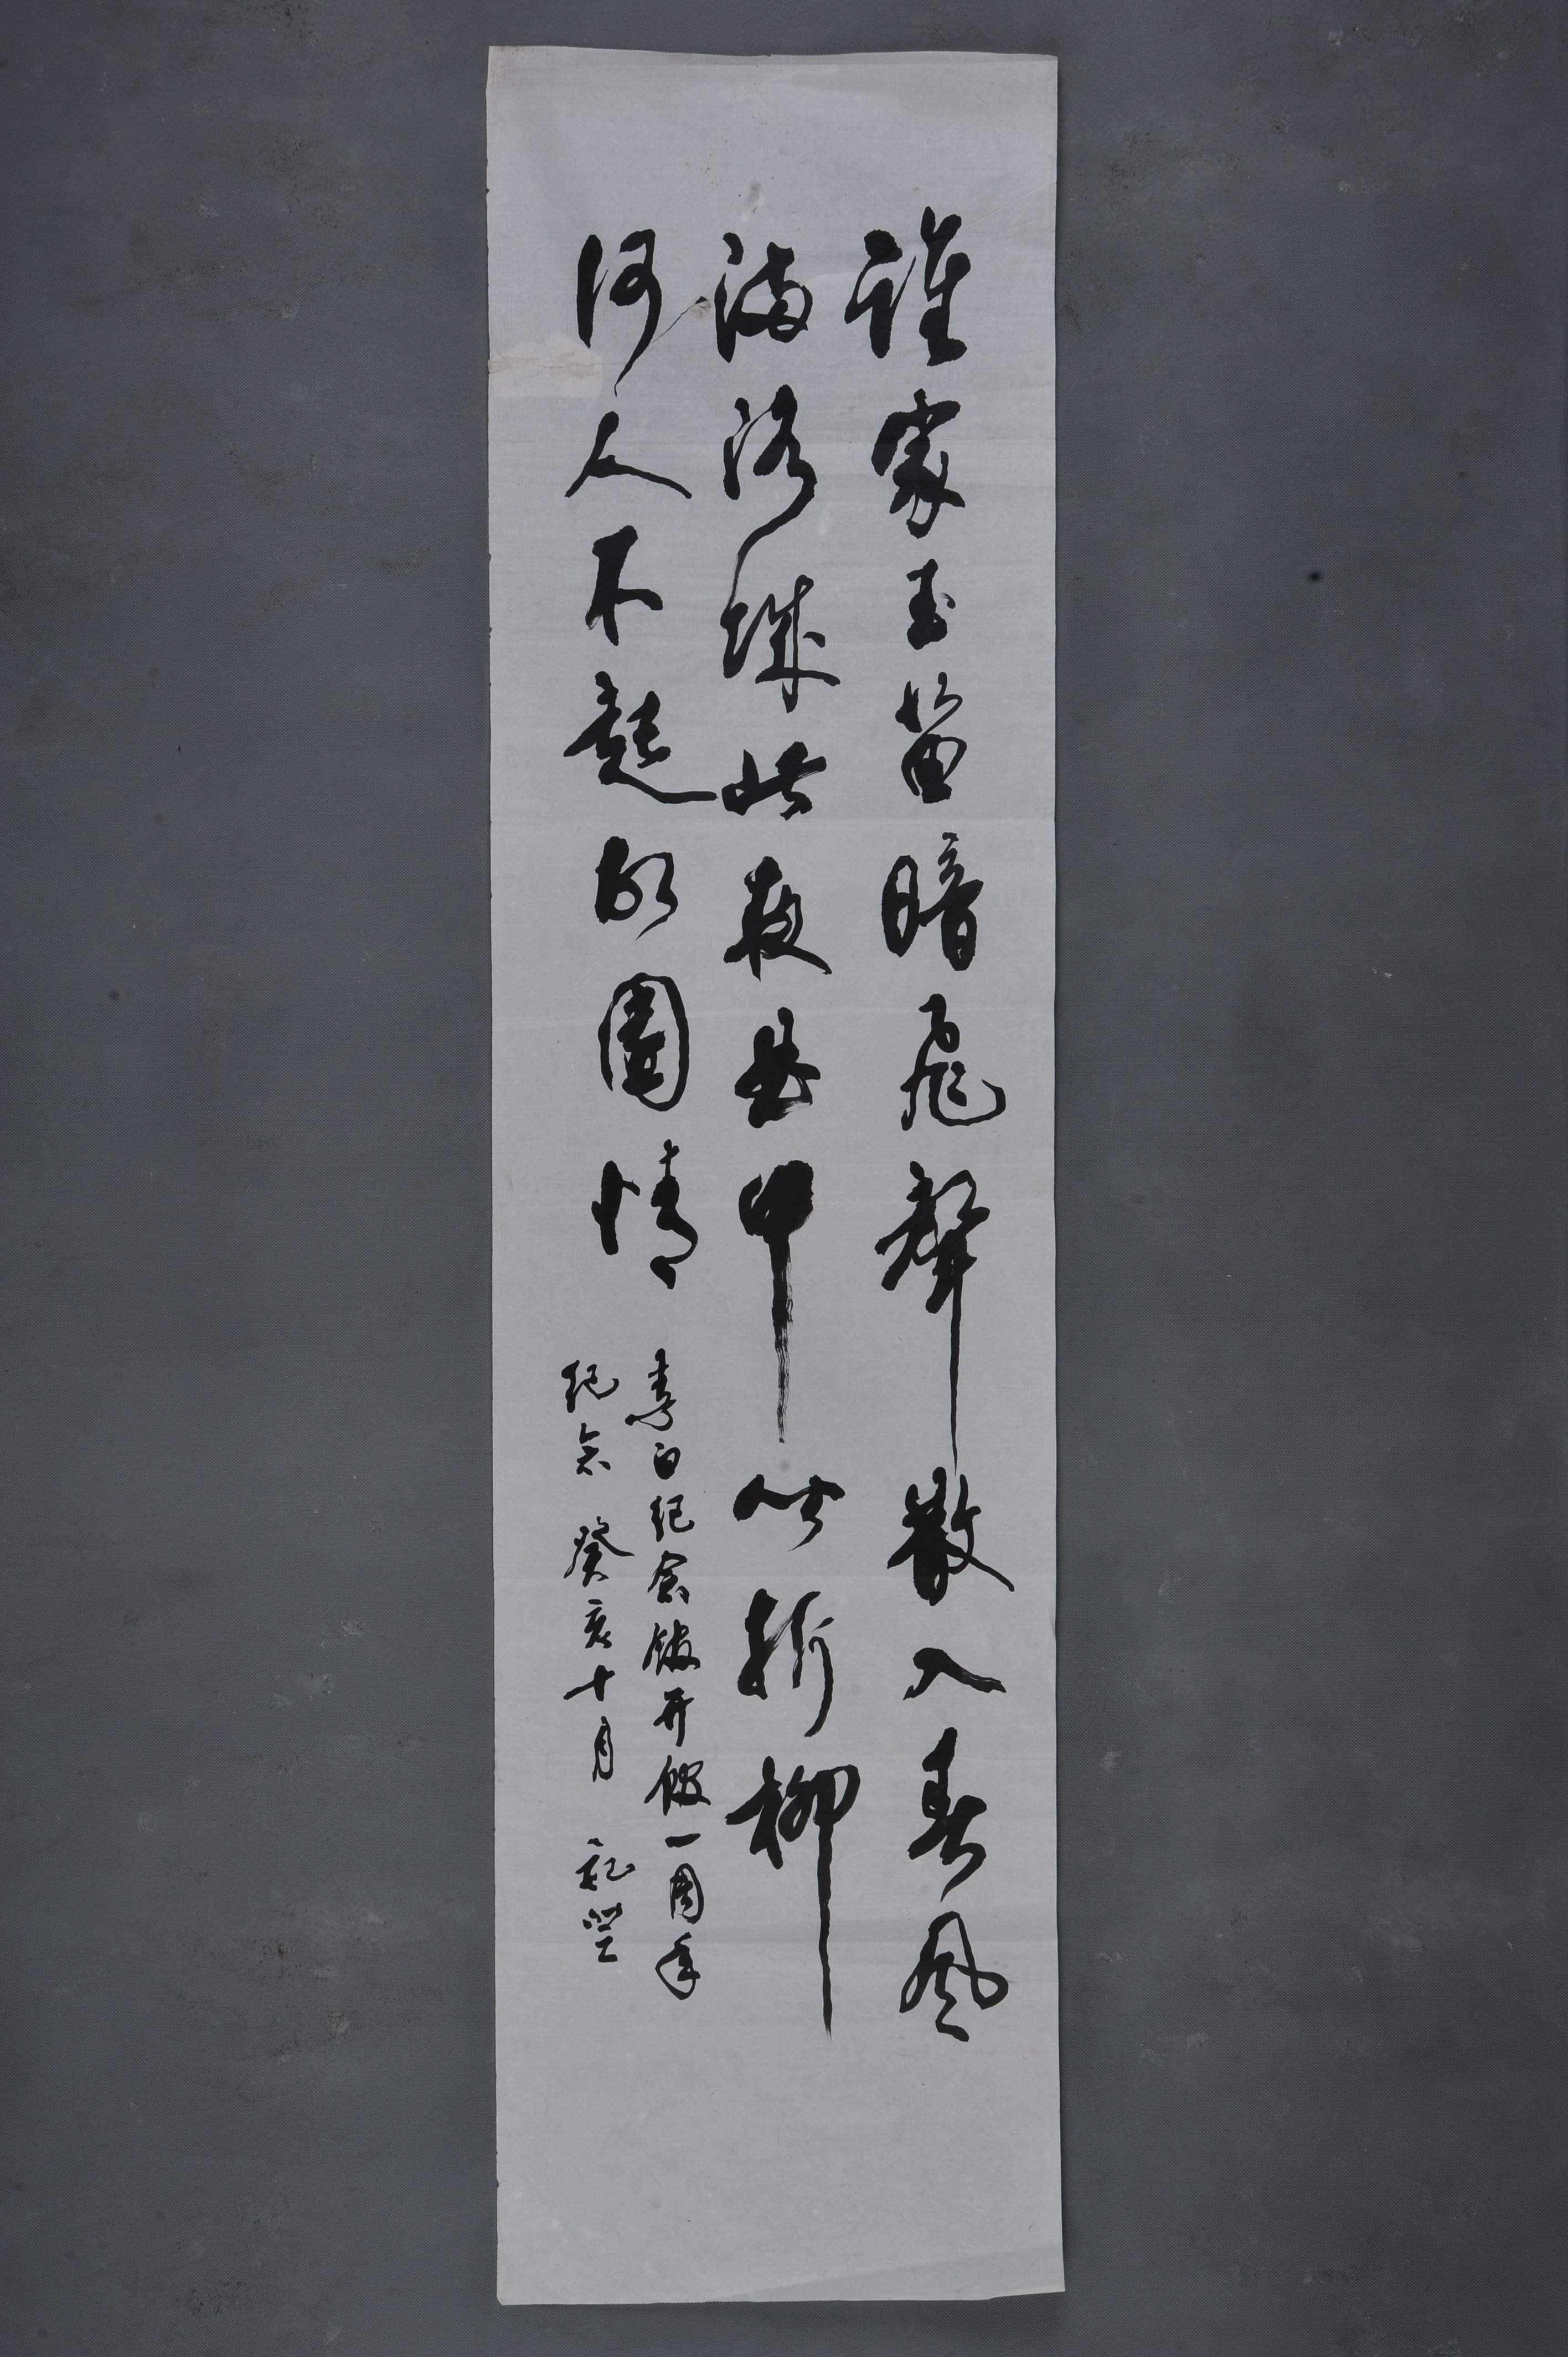 誰家玉笛暗飛聲散入春風
滿洛城此夜曲中聞折柳
何人不起故園情
李白紀念館开館一周年
紀念 癸亥十月